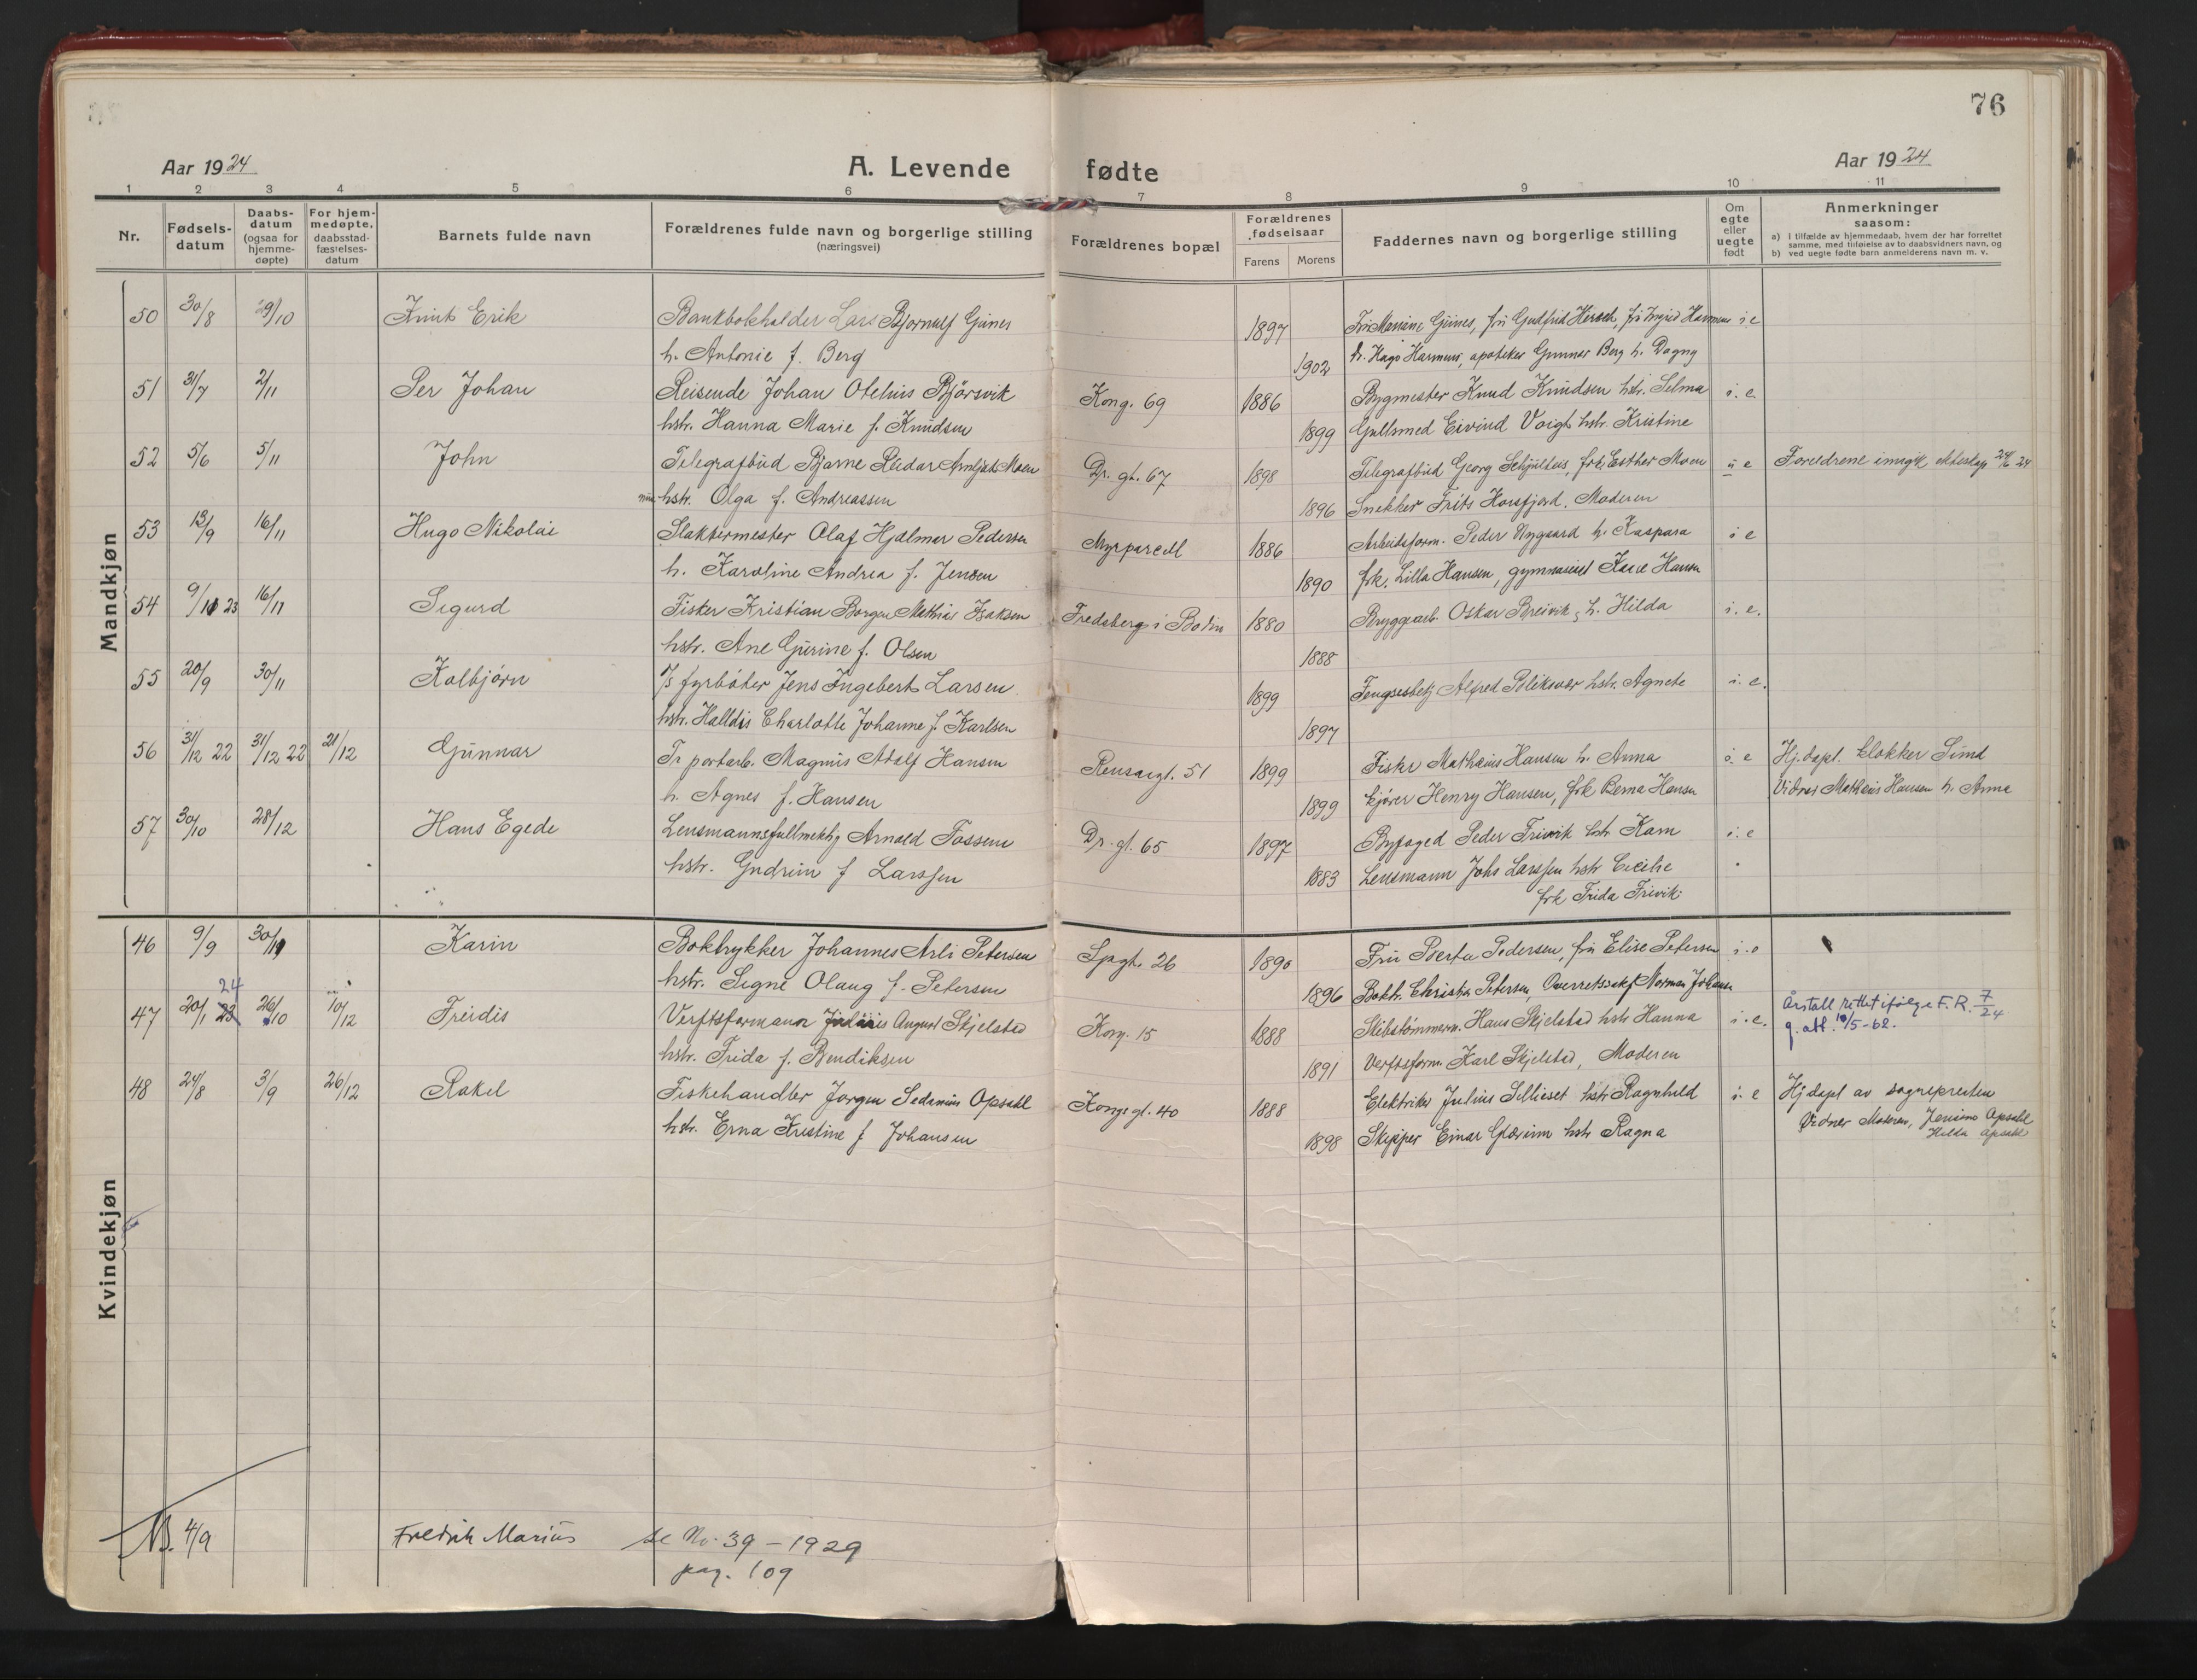 76
Aar 1924
A. Levende fødte
Aar 1924
1 2 3 4 5 6 7 8 9 10 11
Nr.
Fødsels-datum
Daabs-datum (ogsaa for hjemme-døpte)
For hjem-medøpte, daabsstad-fæstelses-datum
Barnets fulde navn
Forældrenes fulde navn og borgerlige stilling
(næringsvei)
Forældrenes bopæl
Forældrenes fødselsaar
Farens Morens
Faddernes navn og borgerlige stilling
Om egte eller uegte født
Anmerkninger
saasom:
a) i tilfælde av hjemmedaab, hvem der har forrettet samme, med tilføielse av to daabsvidners navn, og
b) ved uegte fødte barn anmelderens navn m. v.
Mandkjøn
50 30/8 29/10 Knut Erik Bankbokholder Lars Bjornulf Grines 1897 i e
h. Antonie f. Berg 1902 apoteker Gunnar Berg h. Dagny
51 31/7 2/11 Per Johan Reisende Johan Oteluis Bjørsvik Kong. 69 1886 Bygmester Knud Knudsen hstr. Selma i. e.
hstr. Hanna Marie f. Knudsen 1899 Gullsmed Eivind Voigt hstr. Kristine
52 5/6 5/11 John Telegrafbud Bjarne Reidar Arnljot Moen Dr. gt. 67 1898 Telegrafbud Georg Schjultus, frk. Esther Moen u e Foreldrene inngik ekteskap 24/6 24
hstr. Olga f. Andreassen 1896 Snekker Frits Horsfjord. Moderen
53 13/9 16/11 Hugo Nikolai Slaktermester Olaf Hjalmar Pedersen Myrparcell 1886 Arbeidsform. Peder Nygaard h. Kaspara i e
h. Karoline Andrea f. Jensen 1890 frk. Lilla Hansen, gymnasiast Kaare Hansen
54 9/11 23 16/11 Sigurd Fisker Kristian Borgen Mathias Isaksen Fredsberg i Bodin 1880 Bryggearb. Oskar Breivik, h. Hilda i. e.
hstr. Ane Gurine f. Olsen 1888
55 20/9 30/11 Kolbjørn D/S fyrbøter Jens Ingebert Larsen 1899 Fengselsbetj. Alfred Bliksvær hstr. Agnete i. e.
hstr. Halldis Charlotte Johanne f. Karlsen 1897
56 31/12 22 31/12 22 21/12 Gunnar Tr portarb. Magnus Adolf Hansen Rensaagt. 51 1899 Fisker Mathæus Hansen h. Anna i. e Hj. døpt. klokker Sund
h. Agnes f. Hansen 1899 kjører Henry Hansen, frk Berna Hansen Vidner Mathæus Hansen h. Anna
57 30/10 28/12 Hans Egede Lensmannsfullmektig Arnold Fossem Dr. gt. 65 1897 Byfoged Peder Trivik hstr Karn i. e
hstr. Gudrun f Larssen 1883 Lensmann Johs Larssen hstr Cecilie
frk Frida Trivik
Kvindekjøn
46 9/9 30/11 Karin Boktrykker Johannes Arli Petersen Spgt. 26 1890 Fru Berta Pedersen, fru Elise Petersen i. e
hstr. Signe Olaug f. Petersen 1896 Boktr. Christian Petersen, Overretssakf Norman Johansen
47 20/1 23 24 26/10 10/12 Freidis Verftsformann Julius August Skjelstad Kong. 15 1888 Skibstømmerm. Hans Skjelstad hstr Hanna i. e. Årstall rettet ifølge F.R. 7/24
hstr. Frida f. Bendiksen 1891 Verftsform. Karl Skjelstad, Moderen g. att. 10/5-62.
48 24/8 3/9 26/12 Rakel Fiskehandler Jørgen Sedanius Opsahl Kongsgt. 40 1888 Elektriker Julius Sellieset hstr Ragnhild i. e Hjdøpt av sognepresten
hstr. Erna Kristine f Johansen 1898 Skipper Einar Glærum hstr Ragna Vidner Moderen, Jensine Opsahl
Hilda Opsahl
NB. 4/9 Fredrik Marius se No. 39 - 1929
pag. 109